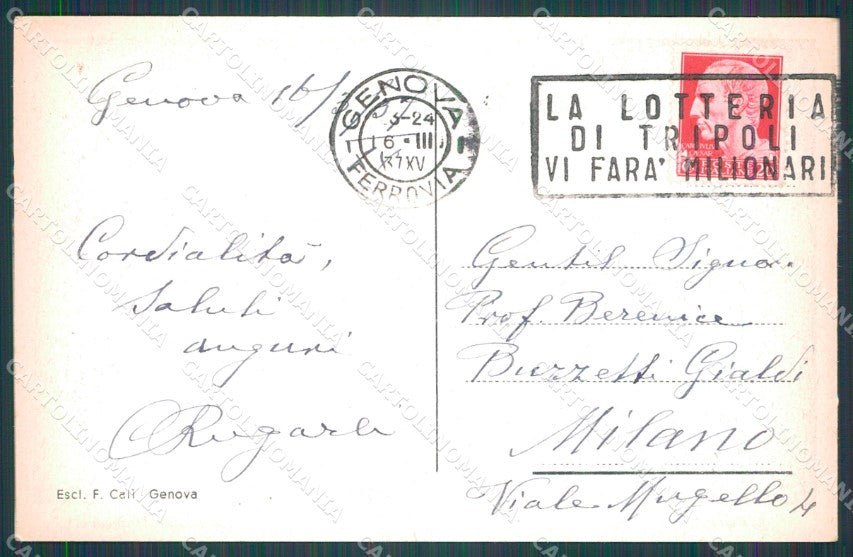 Genova 16/3
GENOVA
3-24
16 · III
37 XV
FERROVIA
LA LOTTERIA
DI TRIPOLI
VI FARA' MILIONARI
Cordialità,
saluti
auguri
Gentil Signora
Prof. Berenice
Buzzetti Gialdi
Milano
Viale Mugello 4
Escl. F. Calì Genova
CARTOLINOMANIA